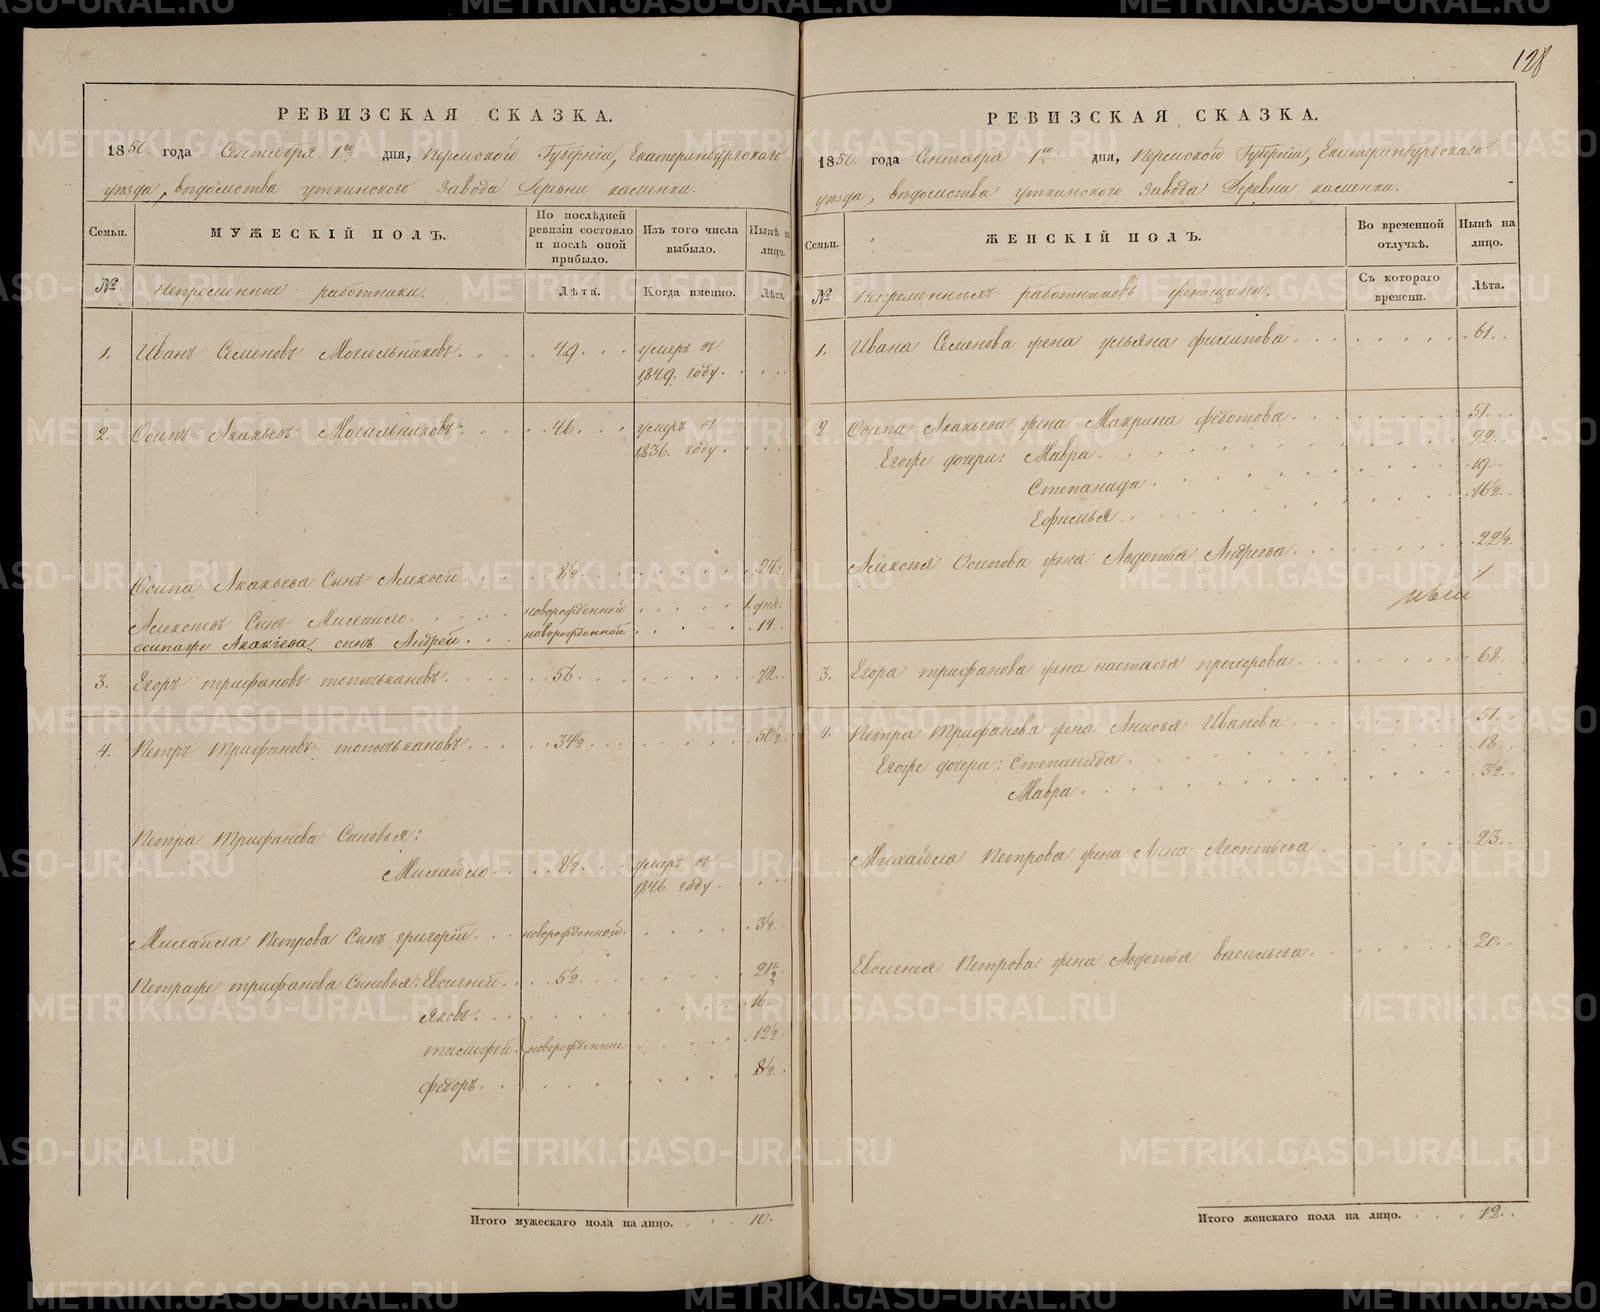 128
РЕВИЗСКАЯ СКАЗКА.
1850 года Сентября 1го дня, Пермской Губерніи, Екатеринбургскаго
уѣзда, вѣдомства уткинского завода Деревни каменки.
Семьи.
МУЖЕСКІЙ ПОЛЪ.
По послѣдней ревизіи состояло и послѣ оной прибыло.
Изъ того числа выбыло.
Нынѣ на лицо.
№
Непременные работники.
Лѣта.
Когда именно.
Лѣта.
1. Иванъ Семеновъ Могильниковъ. 49. умеръ въ
1849. году.
2. Осипъ Акакьевъ Могильниковъ. 46. умеръ въ
1836. году.
Осипа Акакьева Сынъ Алексей. 8½. 24½.
Алексѣевъ Сынъ Михайло. новорожденной 1. дня.
осипаже Акакіева сынъ Андрей. новорожденной 14.
3. Егоръ трифановъ топычкановъ. 56. 72.
4. Петръ Трифановъ топычкановъ. 34½. 50½.
Петра Трифанова Сыновья:
Михайло. 8½. умеръ въ
1846. году
Михайла Петрова Сынъ григорій. новорожденной. 3½.
Петраже трифанова Сыновья: Евсигней. 5½. 21½
Яковъ. 16.
тимофей. новорожденные 12½.
федоръ. 8½.
Итого мужескаго пола на лицо. 10.
РЕВИЗСКАЯ СКАЗКА.
1850. года Сентября 1го дня, Пермской Губерніи, Екатеринбургскаго
уѣзда, вѣдомства уткинского завода Деревни каменки.
Семьи.
ЖЕНСКІЙ ПОЛЪ.
Во временной отлучкѣ.
Нынѣ на лицо.
№
Непременныхъ работниковъ женщины.
Съ котораго времени.
Лѣта.
1. Ивана Семенова жена ульяна филипова. 61.
2. Осипа Акакьева жена Макрина федотова. 51.
Егоже дочери: Мавра. 22.
Степанида. 19.
Ефимья. 16½.
Алексѣя Осипова жена Авдотья Андреева. 22½.
3. Егора трифанова жена настасья прохорова. 68.
4. Петра Трифанова жена Анисья Иванова. 51.
Егоже дочери: Степанида. 18.
Мавра. 3½.
Михайла Петрова жена Анна Леонтьева. 23.
Евсигнея Петрова жена Авдотья васильева. 20.
Итого женскаго пола на лицо. 12.
METRIKI.GASO-URAL.RU